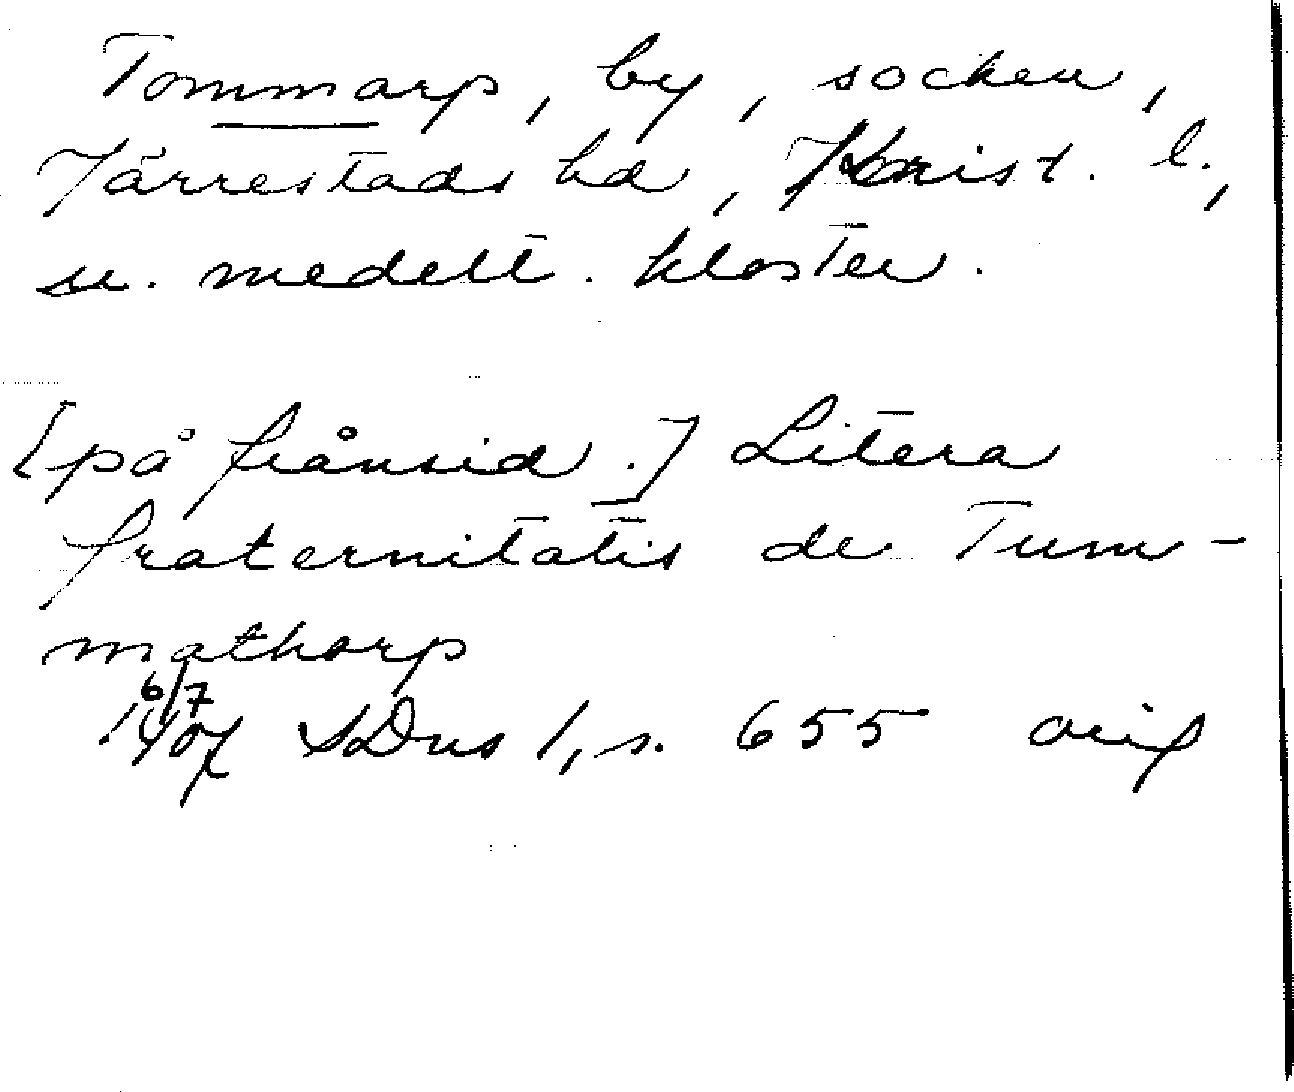 Tommarp, by, socken,
Järrestads hd, Krist. l.,
se. medelt. kloster.
[på frånsid.] Litera
fraternitatis de Tum-
mathorp
6/7
1407 SDns 1, s. 655 orig